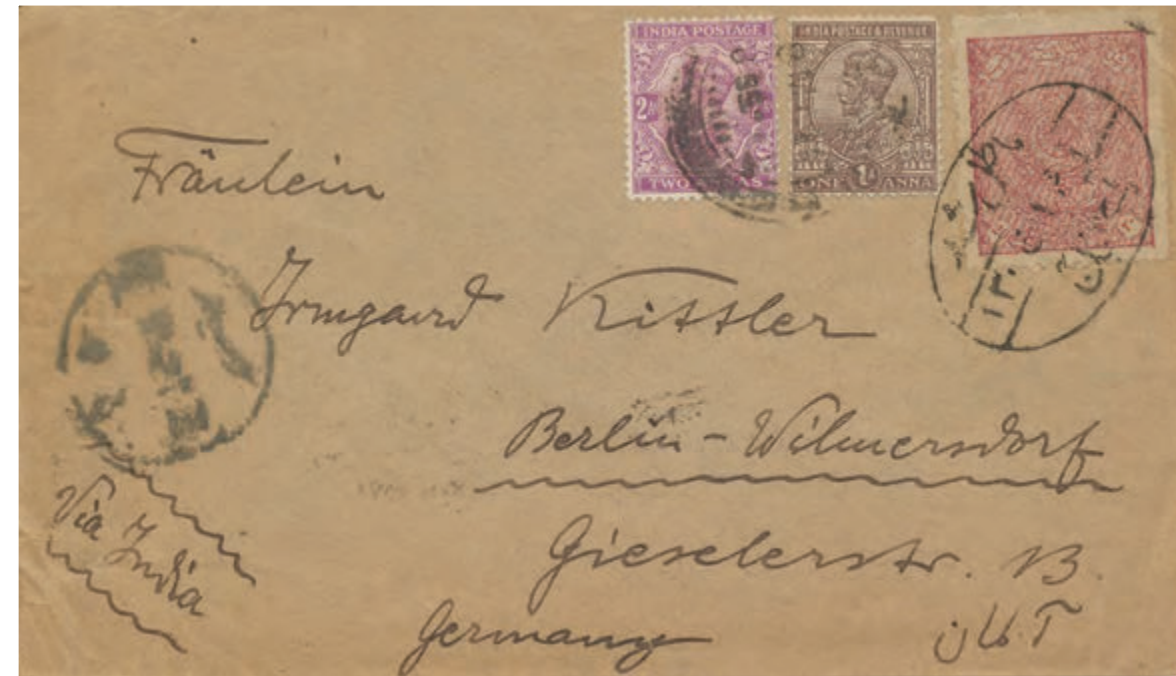 INDIA POSTAGE
2A
TWO ANNAS
INDIA POSTAGE & REVENUE
ONE 1A ANNA
Fräulein
Irmgard Kittler
Berlin-Wilmersdorf
Gieselerstr. 13.
Germany
آلمان
Via India